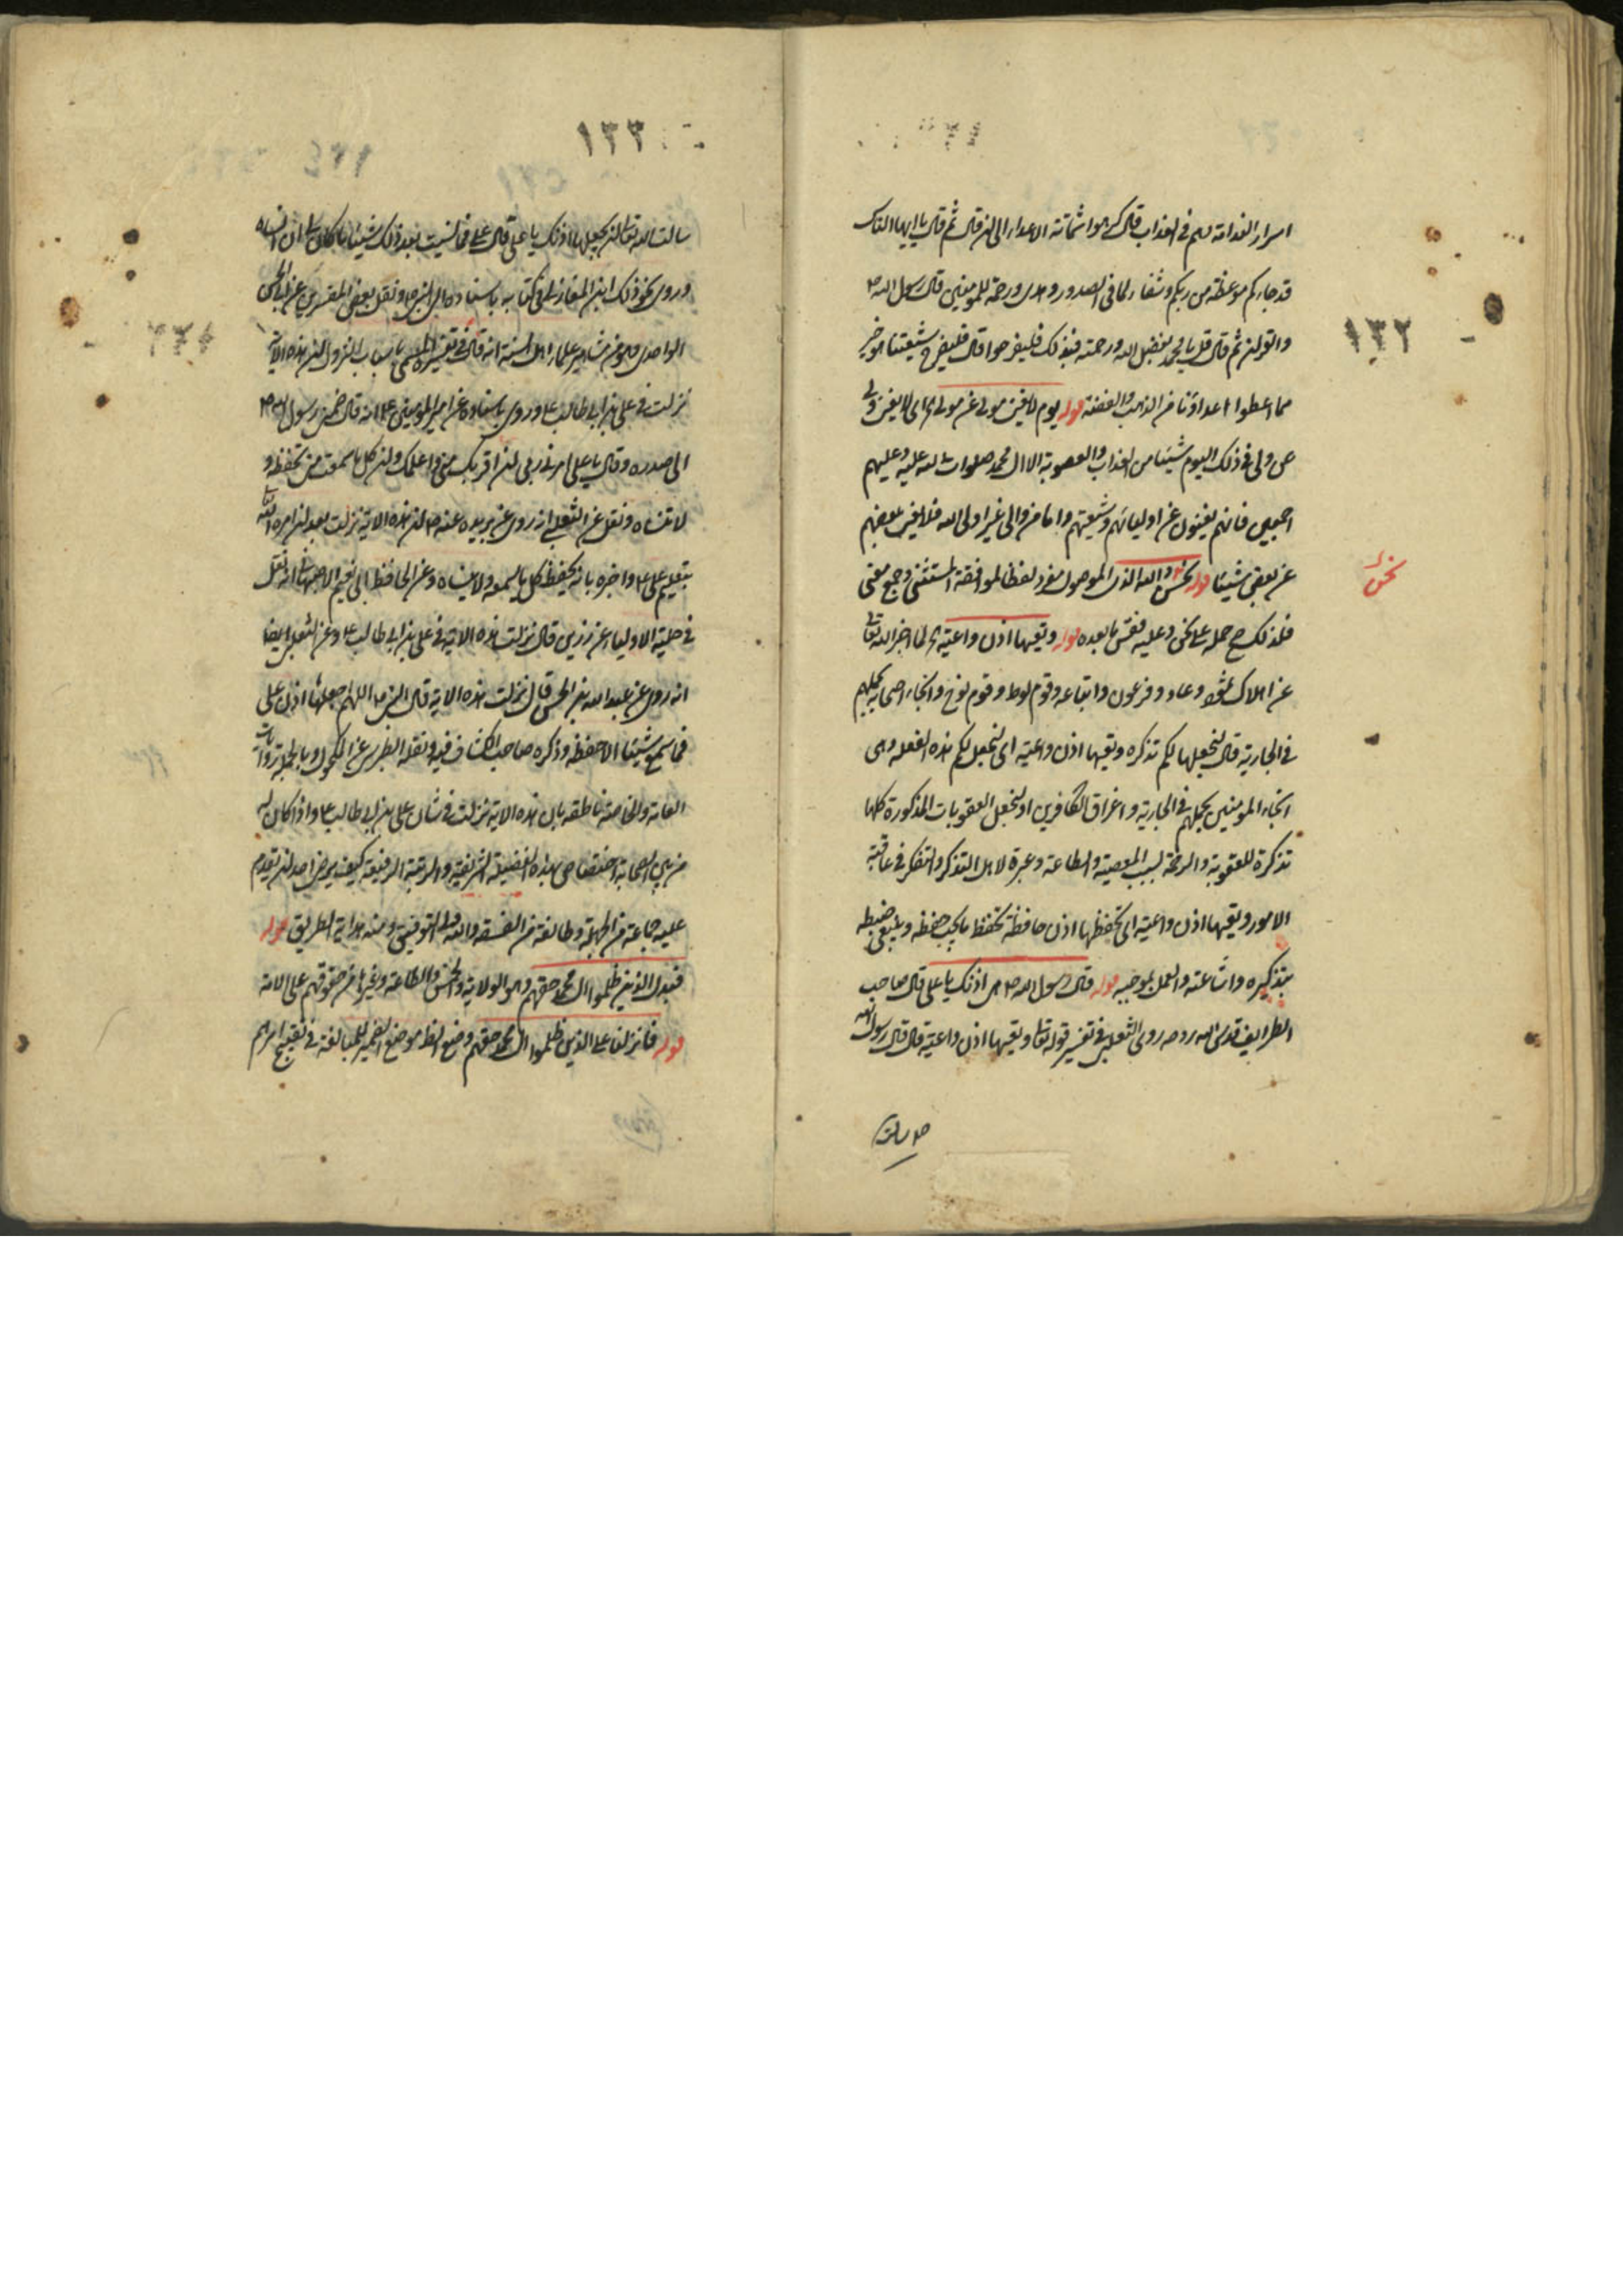 ١٣٢
اسرار الندامة وهم في العذاب قال كرهوا شماتة الاعداء الى ان قال ثم قال يا ايها الناس
قد جاءكم موعظة من ربكم وشفاء لما في الصدور وهدى ورحمة للمومنين قال رسول الله ص
والقران ثم قال قل يا محمد بفضل الله ورحمته فبذلك فليفرحوا قال فليفرح شيعتنا هو خير
مما اعطوا اعداؤنا من الذهب والفضة قوله يوم لا يغني مولى عن مولى اى لا يغنى ولى
عن ولى في ذلك اليوم شيئا من العذاب والعصوبة الا ال محمد صلوات الله عليه وعليهم
اجمعين فانهم يغنون عن اوليائهم وشيعتهم واما من والى غير اولى الله فلا يغنى بعضهم
عن بعض شيئا قوله نحن والله الذى الموصول مفرد لفظا لموافقة المستثنى وجمع معنى
نحن
فلذلك صح حمله على نحن وعليه فقس ما بعده قوله وتعيها اذن واعية لما اخبر الله تعالى
عن اهلاك ثمود وعاد وفرعون واتباعه وقوم لوط وقوم نوح وانجاء اصحابه بحملهم
في الجارية قال لنجعلها لكم تذكرة وتعيها اذن واعية اى لنجعل لكم هذه الفعلة وهى
انجاء المومنين بحملهم في الجارية واغراق الكافرين او لنجعل العقوبات المذكورة كلها
تذكرة للعقوبة والرحمة لسبب المعصية والطاعة وعبرة لاهل التذكر والتفكر في عاقبة
الامور وتعيها اذن واعية اى تحفظها اذن حافظة تحفظ ما يجب حفظه وينبغى ضبطه
بتذكيره واشاعته والعمل بموجبه قوله قال رسول الله ص هى اذنك يا على قال صاحب
الطرايف قدس الله روحه روى الثعلبى في تفسير قوله تعالى وتعيها اذن واعية قال قال رسول الله
ص سالت
١٣٣
سالت الله تعالى ان يجعلها اذنك يا على قال على فما نسيت بعد ذلك شيئا ما كان لى ان انساه
وروى نحو ذلك ابن المغازلى في كتابه باسناده الى النبى ص ونقل بعض المفسرين عن ابى الحسن
الواحدى وهو من مشاهير علماء اهل السنة انه قال في تفسيره المسمى باسباب النزول ان هذه الاية
نزلت في على بن ابى طالب ع وروى باسناده عن امير المومنين ع انه قال ضمنى رسول الله ص
الى صدره وقال يا على امرنى ربى ان اقربك منى واعلمك وان كل ما سمعت منى تحفظه و
لا تنساه ونقل عن الثعلبى انه روى عن بريدة عنه ص ان هذه الاية نزلت بعد ان امره الله
بتعليم على ع واخبره بانه يحفظ كل ما يسمعه ولا ينساه وعن الحافظ ابى نعيم الاصبهانى انه نقل
في حلية الاولياء عن زرين قال نزلت هذه الاية في على بن ابى طالب ع وعن الثعلبى ايضا
انه روى عن عبد الله بن الحسن قال نزلت هذه الاية قال النبى ص اللهم اجعلها اذن على
فما سمع شيئا الا حفظه وذكره صاحب الكشاف فيه ونقله الطبرسى عن المكحول وبالجملة روايات
العامة والخاصة ناطقة بان هذه الاية نزلت في شان على بن ابى طالب ع واذا كان له
من بين الصحابة اختصاص بهذه الفضيلة الشريفة والمرتبة الرفيعة كيف يرضى احد ان يتقدم
عليه جماعة من الجهلة وطائفة من الفسقة والله ولى التوفيق ومنه هداية الطريق قوله
فبدل الذين ظلموا ال محمد حقهم وهو الولاية والخمس والطاعة وغيرها من حقوقهم على الامة
قوله فانزلنا على الذين ظلموا ال محمد حقهم وضع المظهر موضع الضمير للمبالغة في تقبيح امرهم